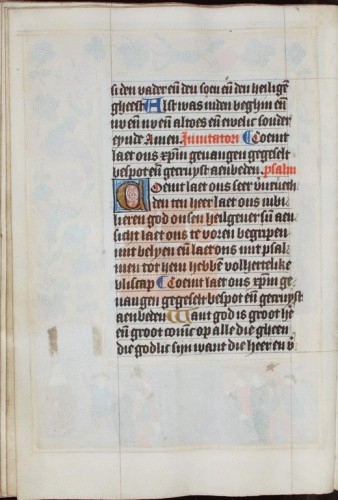 si den vader eñ den soen eñ den heiligē
gheest Alst was inden beghin eñ
nv eñ nv eñ altoes eñ ewelic sonder
eynde Amen. Inuitatori Coemt
laet ons xp̄m geuangen gegeselt
bespot eñ gecruyst aenbeden. psalm
Coemt laet ons seer v̄urueth
den ten heer laet ons iubi
lieren god onsen heilgeuer sijn aen
sicht laet ons te voren begripen
mit belyen eñ laet ons mit psal
men tot hem hebbē volhertelike
bliscap Coemt laet ons xp̄m ge
uangen gegeselt bespot eñ gecruyst
aenbeden Want god is groot he
eñ groot coninc op alle die gheen
die godlic sijn want die heer en v̄